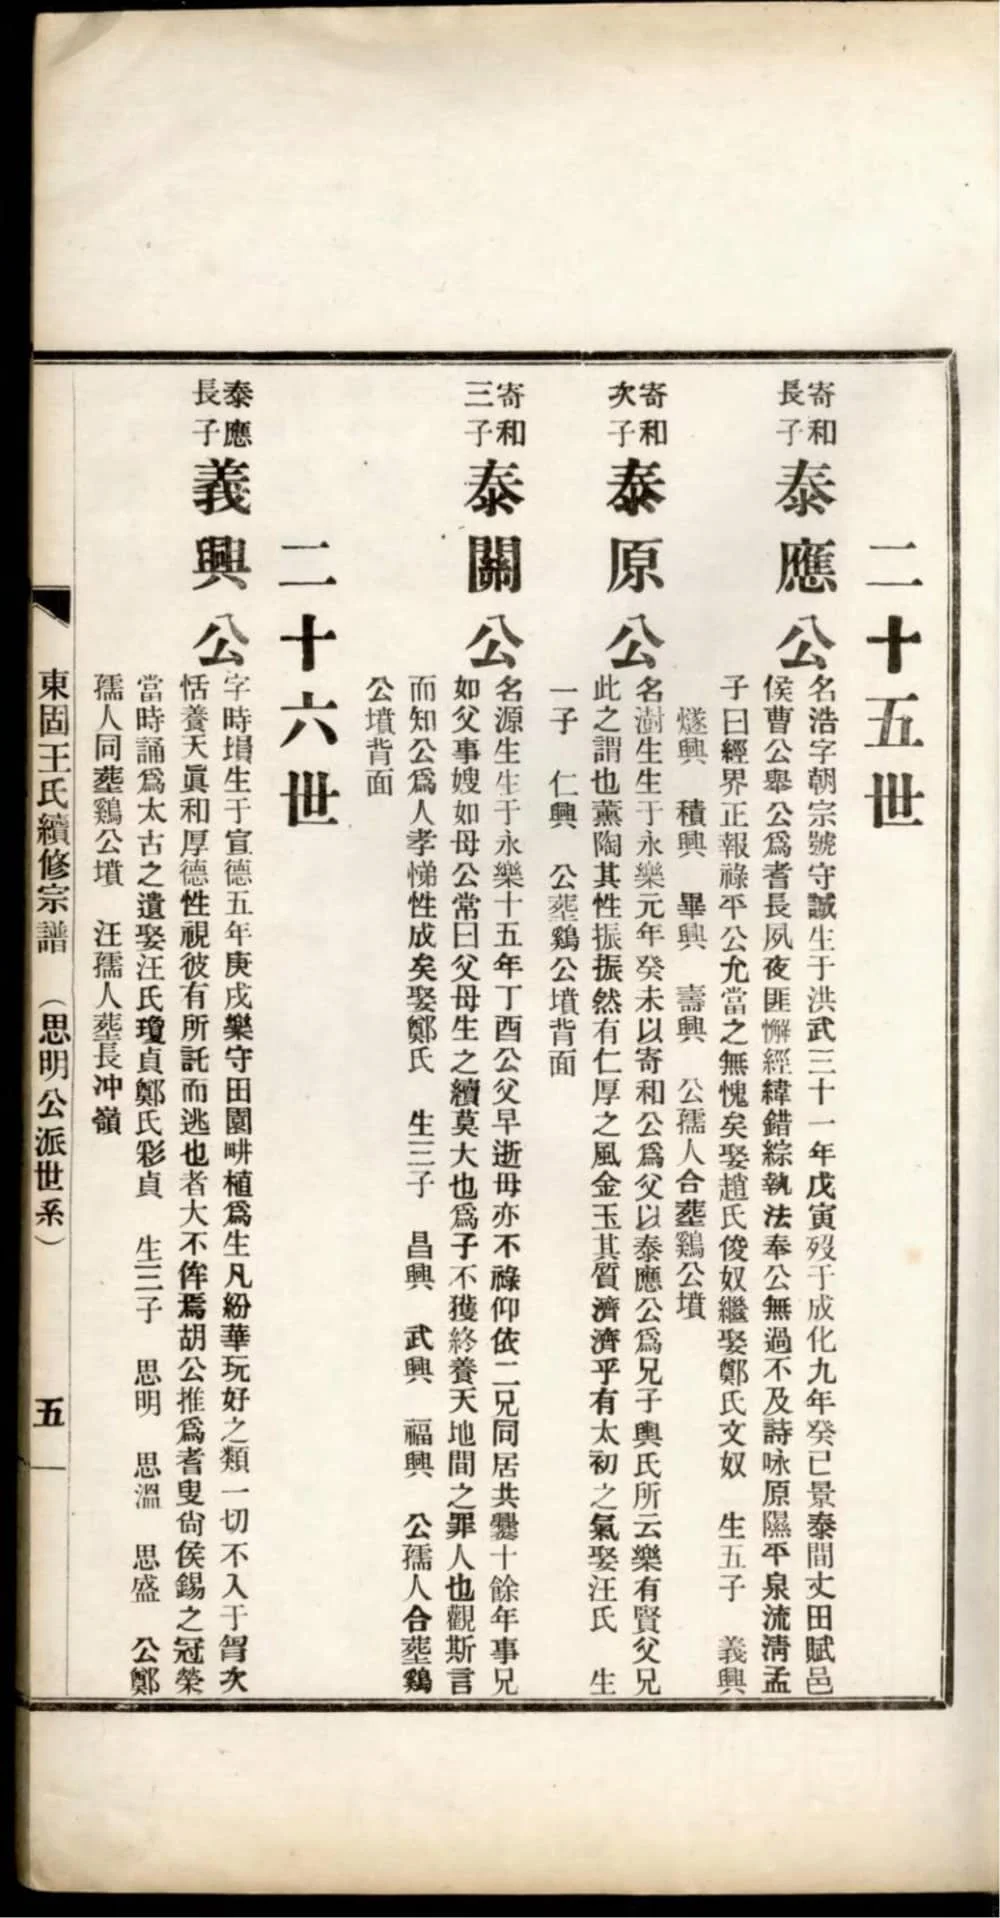 二十五世
寄和
長子
泰應公
名浩字朝宗號守誠生于洪武三十一年戊寅歿于成化九年癸巳景泰間丈田賦邑
侯曹公舉公爲耆長夙夜匪懈經緯錯綜執法奉公無過不及詩咏原隰平泉流清孟
子曰經界正報祿平公允當之無愧矣娶趙氏俊奴繼娶鄭氏文奴　生五子　義興
燧興　積興　畢興　壽興　公孺人合葬鷄公墳
寄和
次子
泰原公
名澍生生于永樂元年癸未以寄和公爲父以泰應公爲兄子輿氏所云樂有賢父兄
此之謂也薰陶其性振振然有仁厚之風金玉其質濟濟乎有太初之氣娶汪氏　生
一子　仁興　公葬鷄公墳背面
寄和
三子
泰關公
名源生生于永樂十五年丁酉公父早逝毋亦不祿仰依二兄同居共爨十餘年事兄
如父事嫂如母公常曰父母生之續莫大也爲子不獲終養天地間之罪人也觀斯言
而知公爲人孝悌性成矣娶鄭氏　生三子　昌興　武興　福興　公孺人合葬鷄
公墳背面
二十六世
泰應
長子
義興公
字時塤生于宣德五年庚戌樂守田園畊植爲生凡紛華玩好之類一切不入于胷次
恬養天眞和厚德性視彼有所託而逃也者大不侔焉胡公推爲耆叟尙侯錫之冠榮
當時誦爲太古之遺娶汪氏瓊貞鄭氏彩貞　生三子　思明　思溫　思盛　公鄭
孺人同葬鷄公墳　汪孺人葬長冲嶺
東固王氏續修宗譜　（思明公派世系）　五